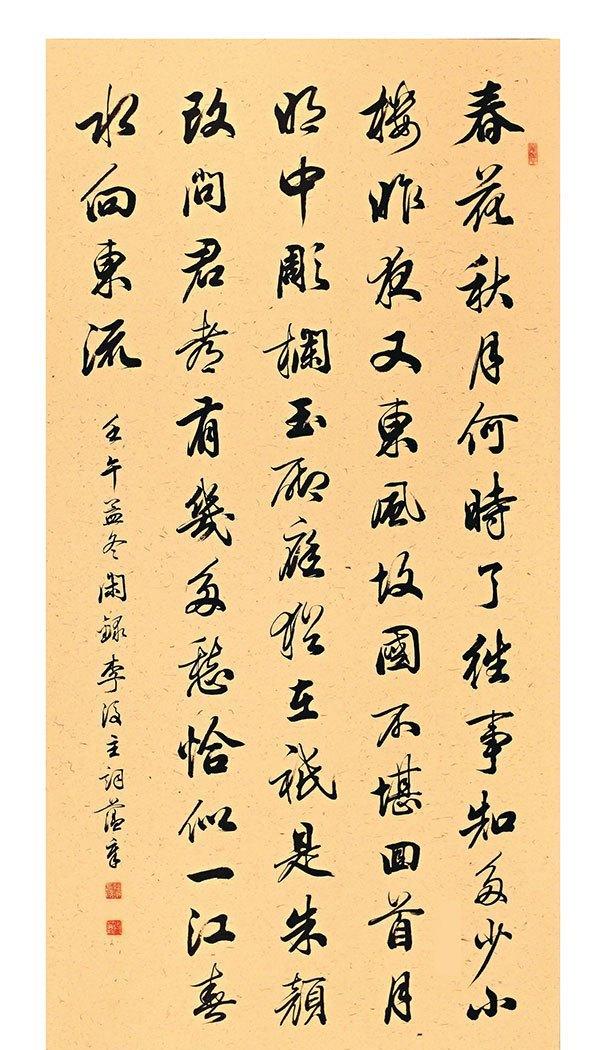 春花秋月何時了往事知多少小
樓昨夜又東風故國不堪回首月
明中彫欄玉砌庭猶在祇是朱顏
改問君都有幾多愁恰似一江春
水向東流
壬午孟冬閑録李後主詞